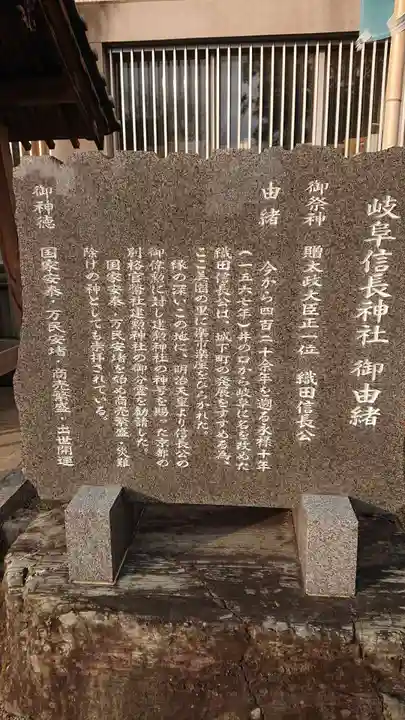 岐阜信長神社 御由緒
御祭神 贈太政大臣正一位 織田信長公
由緒
今から四百二十余年を遡る永禄十年
(一五六七年)井ノ口から岐阜に名を改めた
織田信長公は、城下町の発展をすすめる為、
ここ美園の里に楽市楽座をひらかれた。
縁の深いこの地に、明治天皇より信長公の
御偉勲に対し建勲神社の神号を賜った京都の
別格官幣社建勲神社の御分霊を勧請した。
国家安泰・万民安堵を始め商売繁盛・災難
除けの神としても崇拝されている。
御神徳 国家安泰・万民安堵・商売繁盛・出世開運